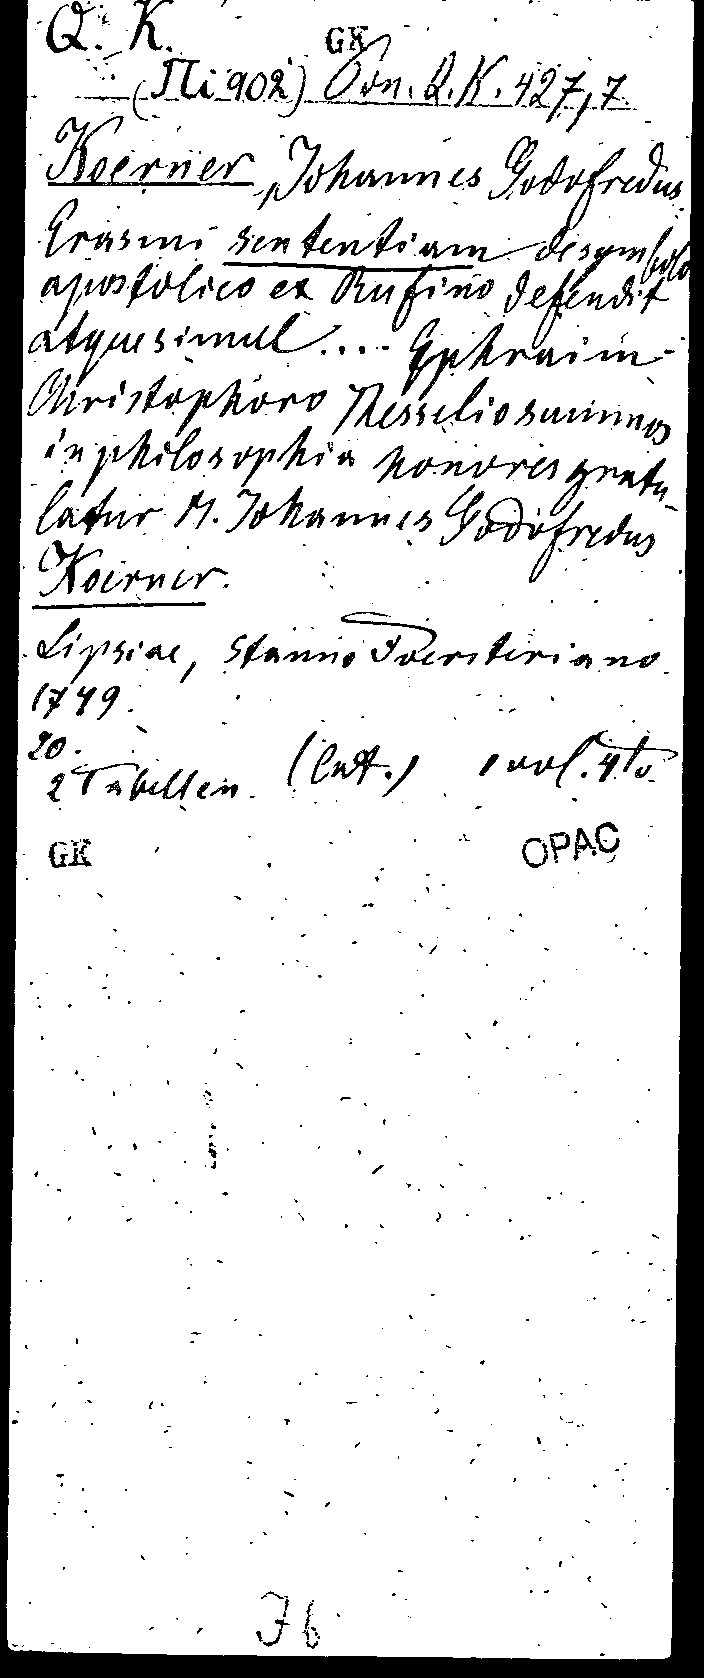 Q. K.
GK
(Mi 902) Don. Q. K. 427,7
Koerner, Johannes Godofredus.
Erasmi sententiam de symbolo
apostolico ex Rufino defendit
atque simul .... Ephraim
Christophoro Nesselio summos
in philosophia honores gratu-
latur M. Johannes Godofredus
Koerner.
Lipsiae, stanno Foersteriano
1749.
20.
2 Tabellen. (lat.) 1 vol. 4to
GK
OPAC